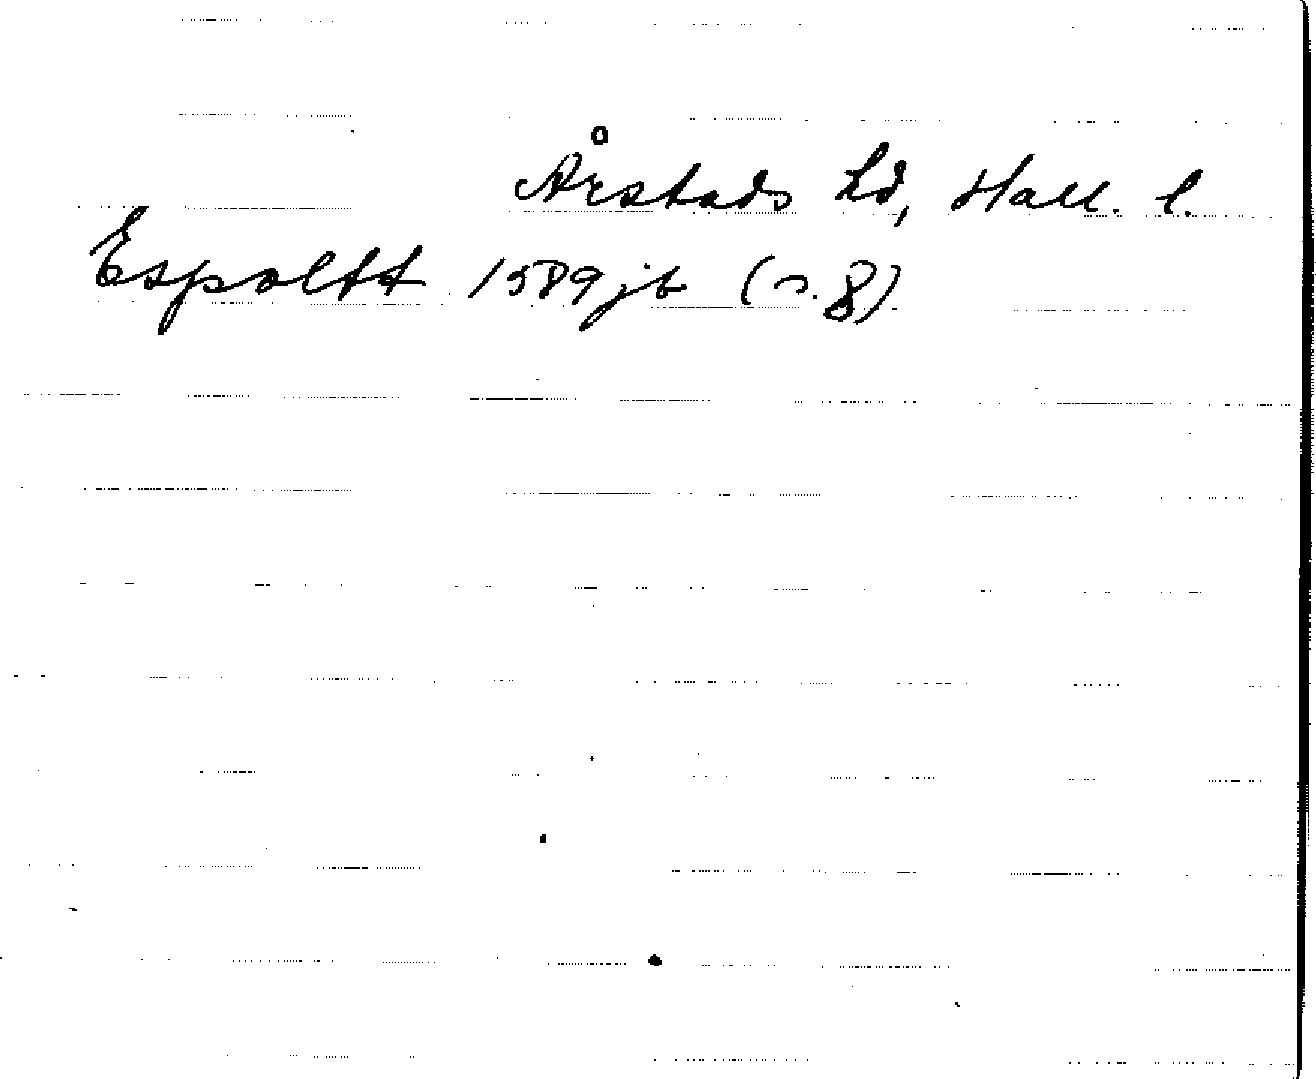 Årstads hd, Hall. l.
Espoltt 1589 jb (n. 8).